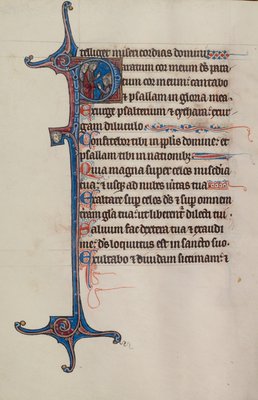 telliget misericordias domini
Paratum cor meum deus para
tum cor meum: cantabo
et psallam in gloria mea
Exurge psalterium et cythara: exur
gam diluculo
Confitebor tibi in populis domine: et
psallam tibi in nationibus
Quia magna super celos misericordia
tua: et usque ad nubes ueritas tua
Exaltare super celos deus et super omnem
terram gloria tua: ut liberentur dilecti tui
Saluum fac dextera tua et exaudi
me: deus locutus est in sancto suo
Exultabo et diuidam siccimam: et